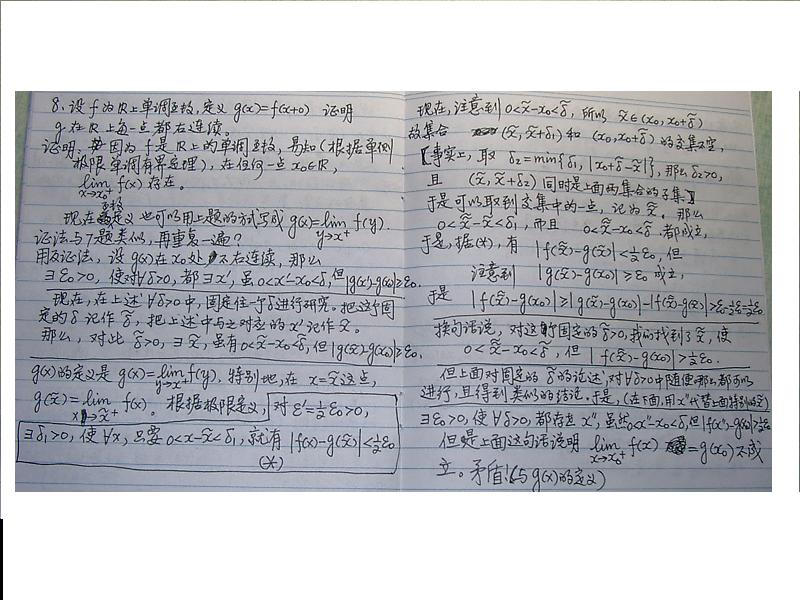 8. 设 f 为 R 上单调函数,定义 g(x)=f(x+0) 证明
g 在 R 上每一点都右连续。
证明: 因为 f 是 R 上的单调函数,易知(根据单侧
极限单调有界定理),在任何一点 x₀∈R,
lim_{x→x₀⁺} f(x) 存在。
现在 定义也可以用上题的方式写成 g(x)=lim_{y→x⁺} f(y).
证法与7题类似,再重复一遍?
用反证法,设 g(x) 在 x₀ 处 不右连续,那么
∃ε₀>0, 使对∀δ>0, 都∃x′, 虽 0<x′-x₀<δ, 但|g(x′)-g(x₀)|≥ε₀.
现在,在上述∀δ>0中,固定住一个δ进行研究。把这个固
定的δ记作δ̃,把上述中与之对应的x′记作x̃。
那么,对此 δ̃>0, ∃x̃, 虽有 0<x̃-x₀<δ̃, 但|g(x̃)-g(x₀)|≥ε₀.
g(x)的定义是 g(x)=lim_{y→x⁺} f(y). 特别地,在 x=x̃ 这点,
g(x̃)=lim_{x→x̃⁺} f(x). 根据极限定义,对 ε′=½ε₀>0,
∃δ₁>0, 使∀x, 只要 0<x-x̃<δ₁, 就有 |f(x)-g(x̃)|<½ε₀
(*)
现在,注意到 0<x̃-x₀<δ̃, 所以 x̃∈(x₀, x₀+δ̃)
故集合 (x̃, x̃+δ₁) 和 (x₀, x₀+δ̃) 的交集不空,
【事实上,取 δ₂=min{δ₁, |x₀+δ̃-x̃|}, 那么 δ₂>0,
且 (x̃, x̃+δ₂) 同时是上面两集合的子集】
于是可以取到交集中的一点,记为 x̃̃. 那么
0<x̃̃-x̃<δ₁, 而且 0<x̃̃-x₀<δ̃ 都成立,
于是,据(*),有 |f(x̃̃)-g(x̃)|<½ε₀, 但
注意到 |g(x̃)-g(x₀)|≥ε₀ 成立,
于是 |f(x̃̃)-g(x₀)|≥|g(x̃)-g(x₀)|-|f(x̃̃)-g(x̃)|>ε₀-½ε₀=½ε₀
换句话说,对这个固定的δ̃>0, 我们找到了x̃̃, 使
0<x̃̃-x₀<δ̃, 但 |f(x̃̃)-g(x₀)|>½ε₀.
但上面对固定的δ̃的论述,对∀δ>0中随便哪个都可以
进行,且得到类似的结论,于是,(在下面,用x″代替上面特别的x̃̃)
∃ε₀>0, 使∀δ>0, 都存在x″, 虽然0<x″-x₀<δ, 但|f(x″)-g(x₀)|>½ε₀
但是上面这句话说明 lim_{x→x₀⁺} f(x) =g(x₀) 不成
立。矛盾!(与g(x)的定义)